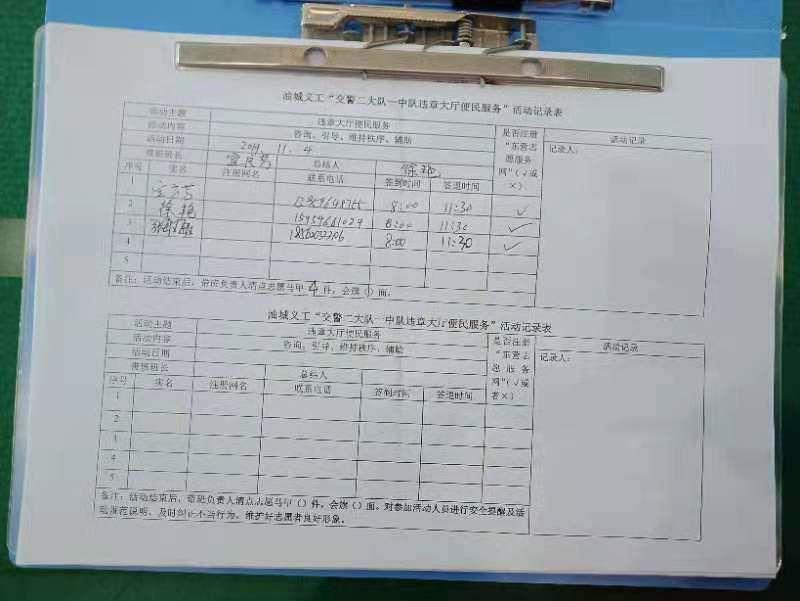 油城义工“交警二大队一中队违章大厅便民服务”活动记录表
活动主题 违章大厅便民服务 是否注册“东营志愿服务网”(√或×) 活动记录
活动内容 咨询、引导、维持秩序、辅助 记录人:
活动日期 11. 4
带班班长 总结人 徐艳
序号 实名 注册网名 联系电话 签到时间 签退时间
1 8:00 11:30 ✓
2 徐艳 8:00 11:30 ✓
3 8:00 11:30 ✓
4
5
备注:活动结束后,带班负责人清点志愿马甲 4 件,会旗()面。
油城义工“交警二大队一中队违章大厅便民服务”活动记录表
活动主题 违章大厅便民服务 是否注册“东营志愿服务网”(√或者×) 活动记录
活动内容 咨询、引导、维持秩序、辅助 记录人:
活动日期
带班班长 总结人
序号 实名 注册网名 联系电话 签到时间 签退时间
1
2
3
4
5
备注:活动结束后,带班负责人清点志愿马甲()件,会旗()面。对参加活动人员进行安全提醒及活
动规范说明,及时纠正不当行为,维护好志愿者良好形象。